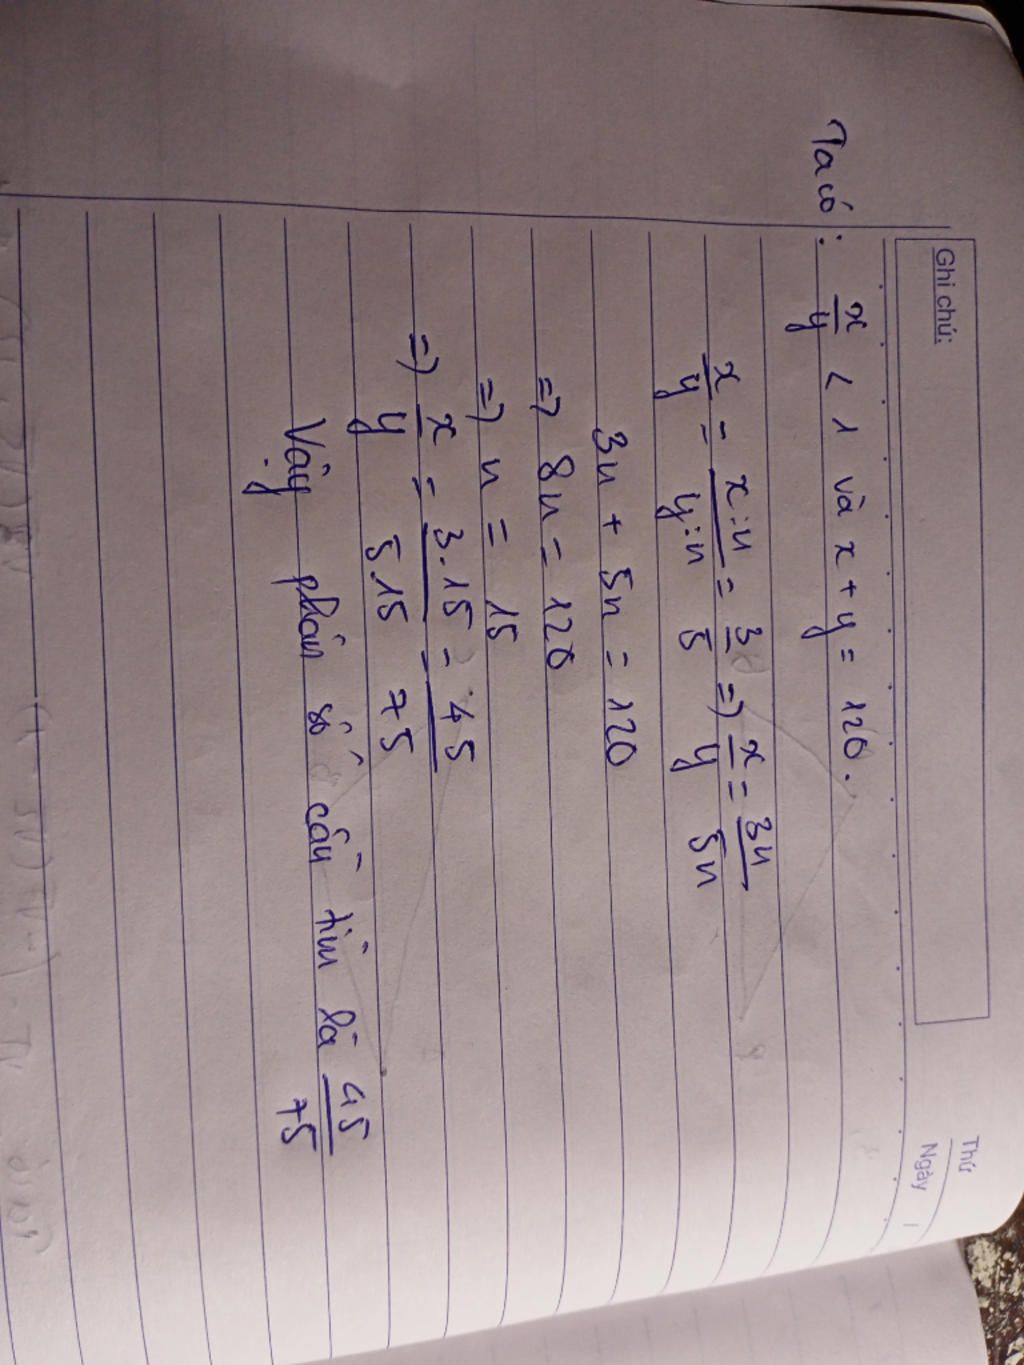 Ghi chú:
Thứ
Ngày /
Ta có : x/y < 1 và x + y = 120.
x/y = x:n/y:n = 3/5 => x/y = 3n/5n
3n + 5n = 120
=> 8n = 120
=> n = 15
=> x/y = 3.15/5.15 = 45/75
Vậy phân số cần tìm là 45/75